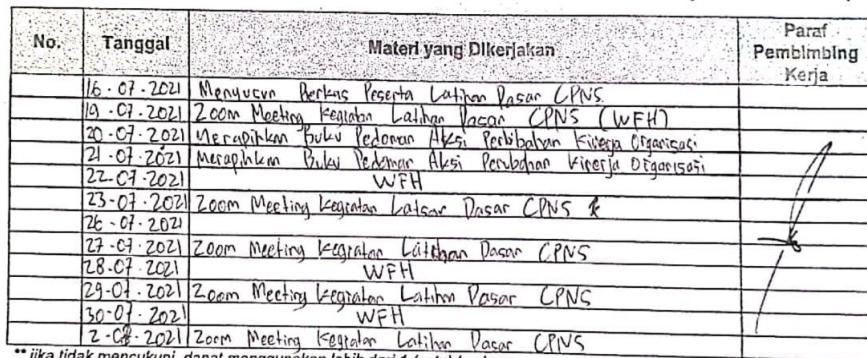 No. Tanggal Materi yang Dikerjakan Paraf Pembimbing Kerja
16-07-2021 Menyusun Berkas Peserta Latihan Dasar CPNS
19-07-2021 Zoom Meeting Kegiatan Latihan Dasar CPNS (WFH)
20-07-2021 Merapihkan Buku Pedoman Aksi Perbibahan Kinerja Organisasi
21-07-2021 Merapihkan Buku Pedoman Aksi Perubahan Kinerja Organisasi
22-07-2021 WFH
23-07-2021 Zoom Meeting Kegiatan Latsar Dasar CPNS
26-07-2021
27-07-2021 Zoom Meeting Kegiatan Latihan Dasar CPNS
28-07-2021 WFH
29-07-2021 Zoom Meeting Kegiatan Latihan Dasar CPNS
30-07-2021 WFH
2-08-2021 Zoom Meeting Kegiatan Latihan Dasar CPNS
** jika tidak mencukupi, dapat menggunakan lebih dari 1